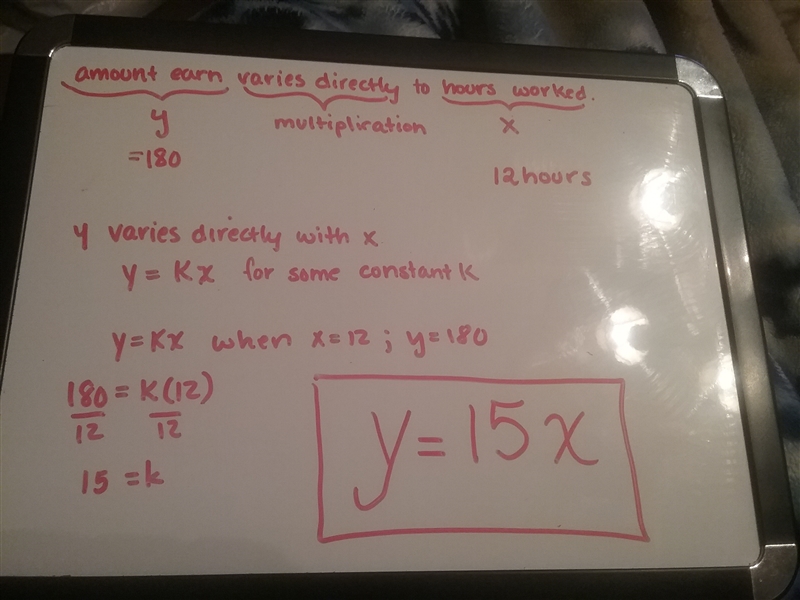 amount earn varies directly to hours worked.
y multiplication x
=180
12 hours
y varies directly with x
y = Kx for some constant K
y=Kx when x=12 ; y=180
180 = K(12)
12 12
15 = k
y = 15x